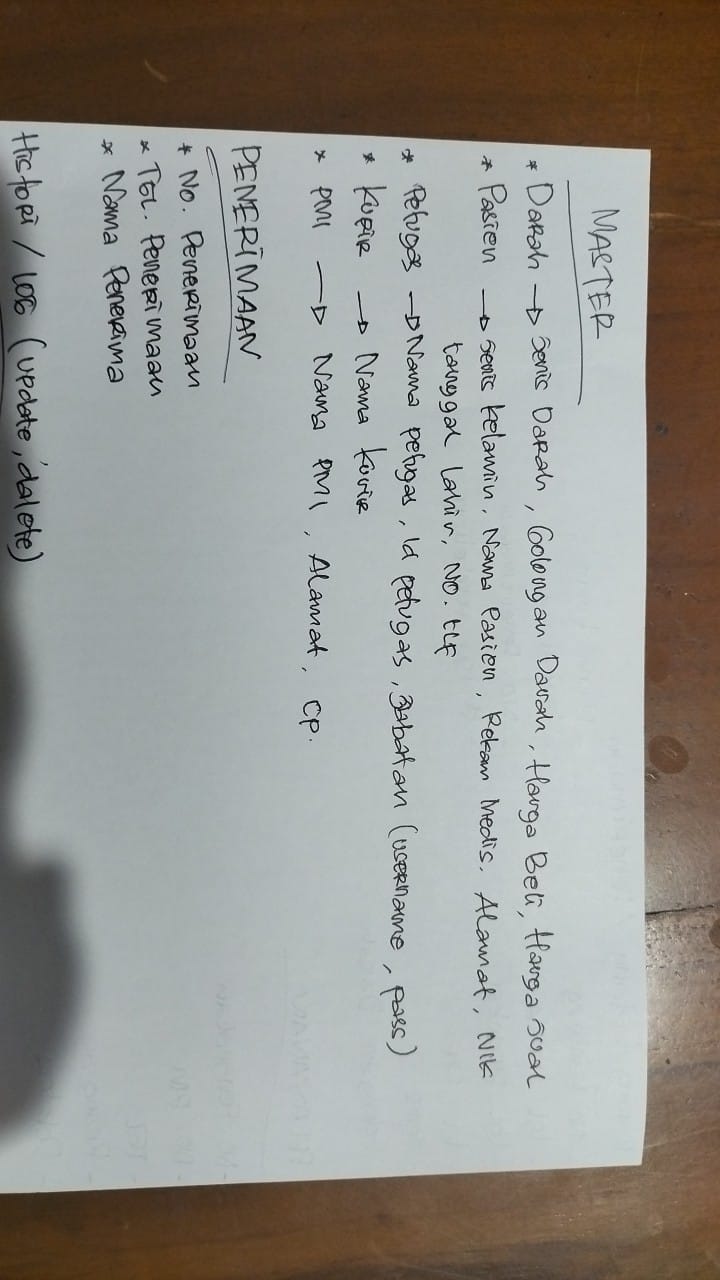 MASTER
* Darah → Jenis Darah, Golongan Darah, Harga Beli, Harga Jual
* Pasien → Jenis kelamin, Nama Pasien, Rekam Medis. Alamat, NIK
tanggal lahir, NO. tlf
* Petugas → Nama petugas, id petugas, Jabatan (username, pass)
* Kurir → Nama kurir
* PMI → Nama PMI, Alamat, CP.
PENERIMAAN
* No. Penerimaan
* TGL. Penerimaan
* Nama Penerima
Histori / LOG (update, dalete)